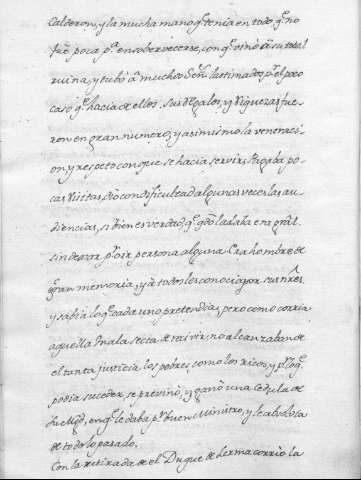 Calderon, y la mucha mano q.e tenia en todo, q.e no
fuè poca p.a ensobervecerse, con q.e vino â su total
ruina, y tubo â muchos Señ.s lastimados p.r el poco
caso q.e hacia de ellos. Sus Regalos, y Riquezas fue
ron en gran numero, y asimismo la veneraci
on, y respeto con que se hacia servir. Pagaba po
cas Visitas, Dio con dificultad algunas veces las au
diencias, si bien es verdad, q.e q.do la daba era gral.
sin dexar p.r oir persona alguna. Era hombre de
gran memoria, y â todos les conocia por sus nres.
y sabia lo q.e cada uno pretendia, pero como corria
aquella mala secta de recivir, no alcanzaban de
el tanta justicia los pobres como los ricos, y p.r lo q.e
podia suceder, se previnò, y ganò una Cedula de
su Mag.d, en q.e le daba p.r buen Ministro, y le absolvia
de todo lo pasado.
Con la retirada de el Duque de Lerma corriò la